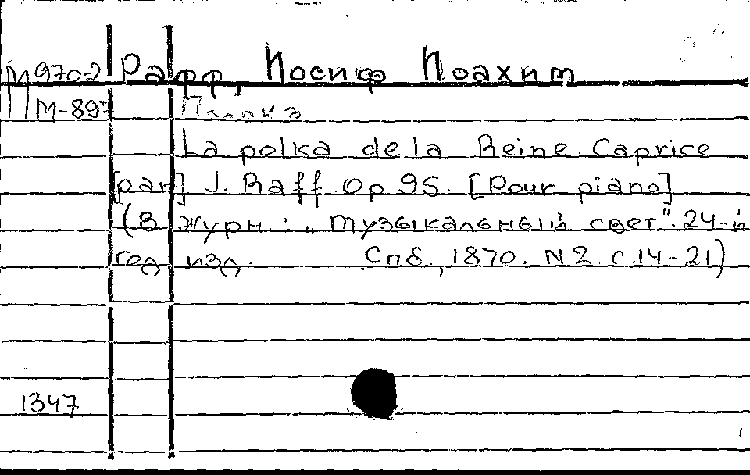 М970-2 Рафф, Иосиф Иоахим
М-897
La polka de la Reine. Caprice
[par] J. Raff. Op 95. [Pour piano]
(В журн: „Музыкальный свет". 24-й
год изд. Спб., 1870. N2. с.14-21)
1347